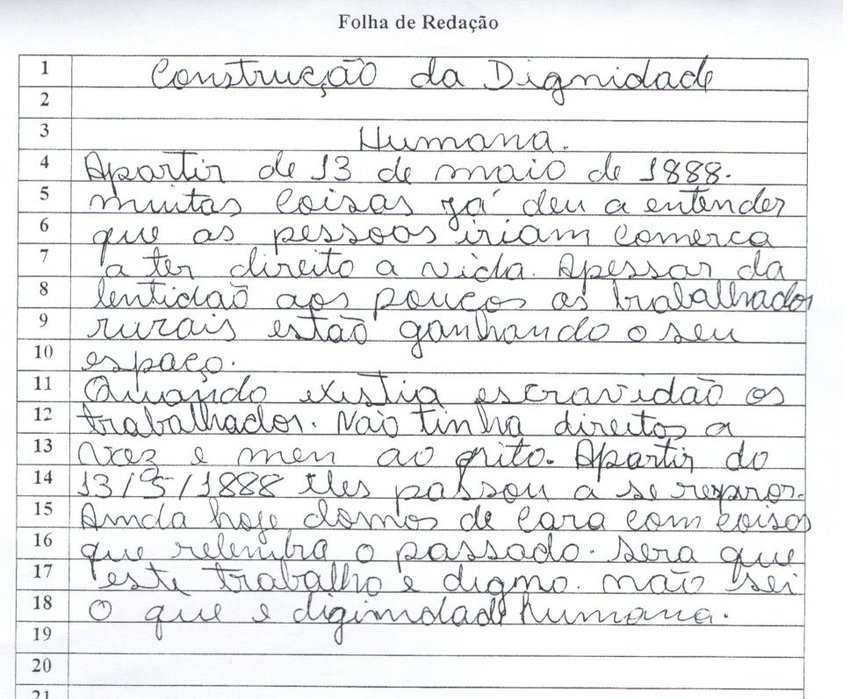 Folha de Redação
1 Construção da Dignidade
2
3 Humana.
4 Apartir de 13 de maio de 1888.
5 muitas coisas já deu a entender
6 que as pessoas iriam comerca
7 a ter direito a vida. Apessar da
8 lentidão aos poucos os trabalhador
9 rurais estão ganhando o seu
10 espaço.
11 Quando existia escravidão os
12 trabalhador. Não tinha direitos a
13 vez e men ao grito. Apartir do
14 13/5/1888 eles passou a se
15 Ainda hoje damos de cara com coisas
16 que relembra o passado. Sera que
17 este trabalho e digmo. não sei
18 O que e digimdade humana.
19
20
21